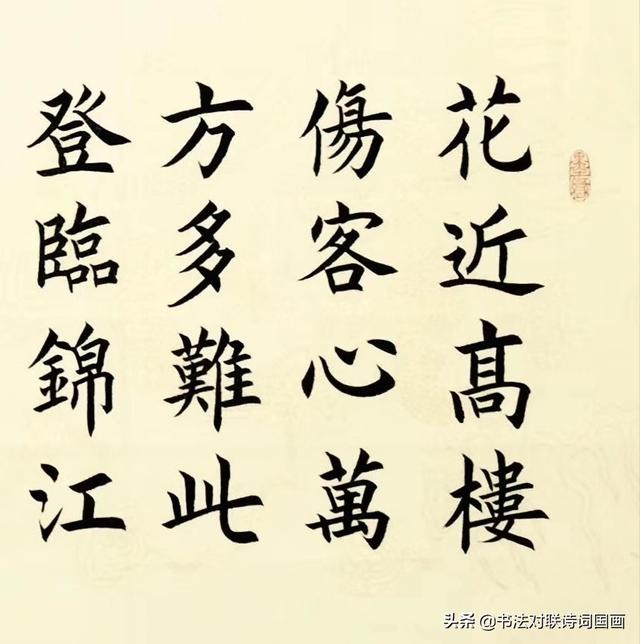 花近髙樓
傷客心萬
方多難此
登臨錦江
头条 @书法对联诗词国画